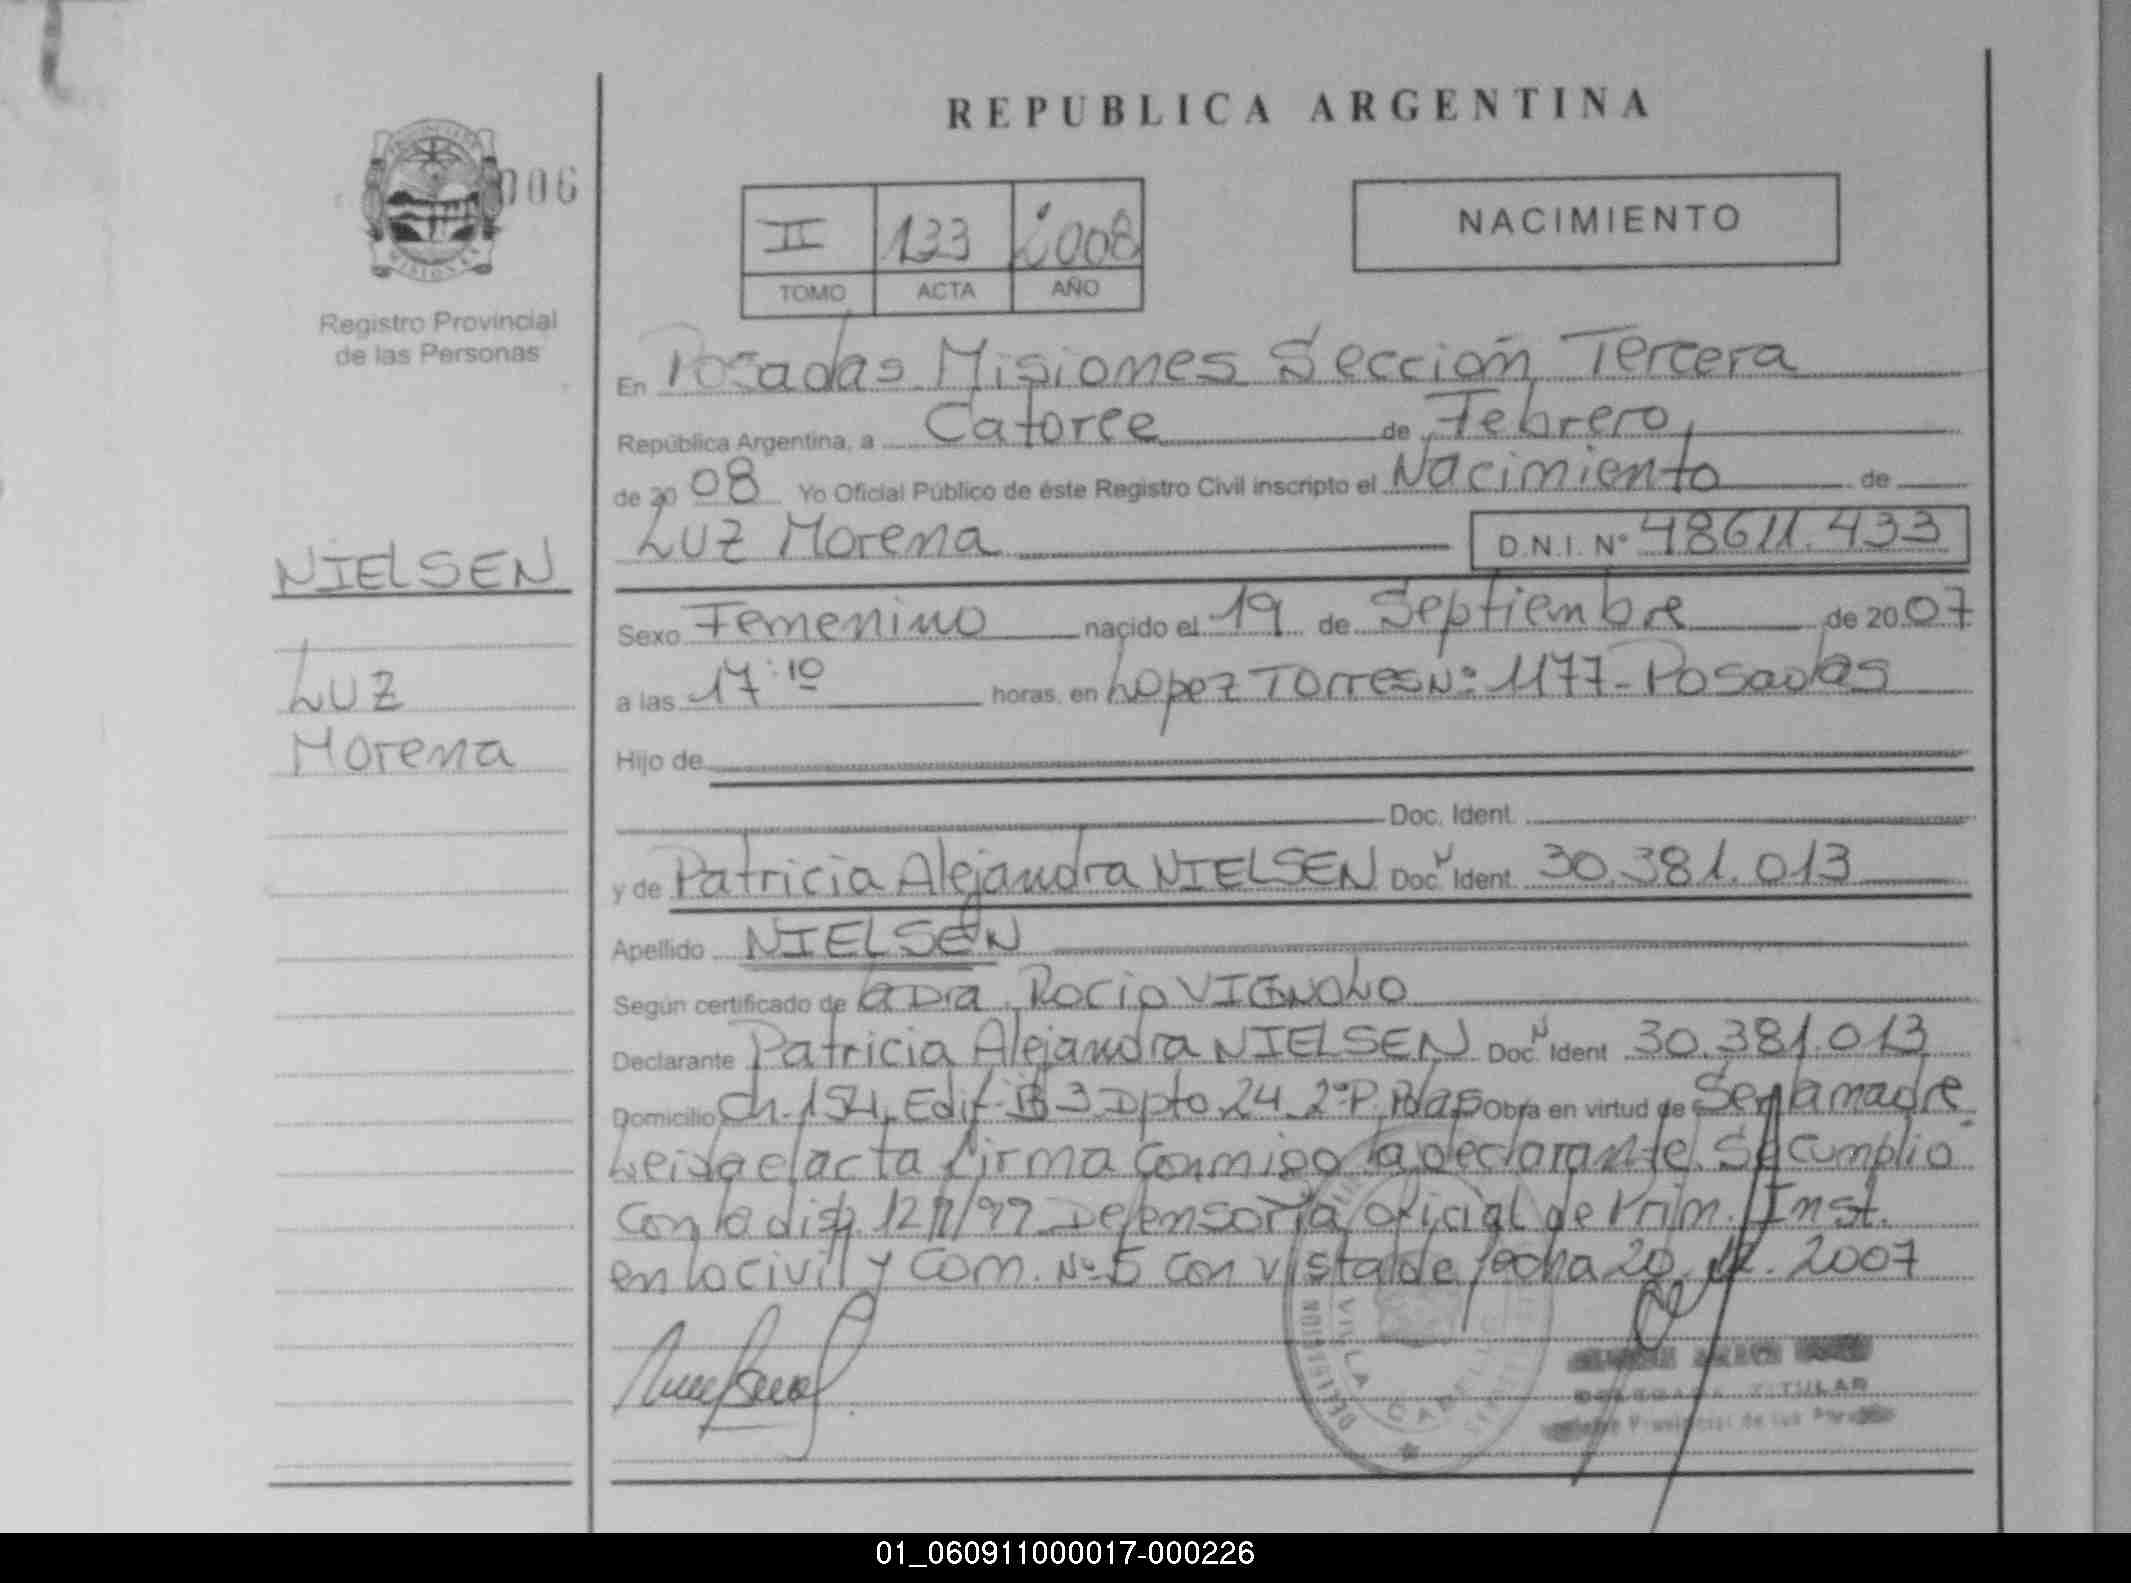 REPUBLICA ARGENTINA
006
II 133 2008
TOMO ACTA AÑO
NACIMIENTO
MISIONES
Registro Provincial
de las Personas
En Posadas Misiones Sección Tercera
República Argentina, a Catorce de Febrero
de 20 08 Yo Oficial Público de éste Registro Civil inscripto el Nacimiento de
Luz Morena D.N.I. Nº 48611.433
NIELSEN
Luz
Morena
Sexo Femenino nacido el 19 de Septiembre de 20 07
a las 17:10 horas, en Lopez Torres Nº 1177-Posadas
Hijo de
Doc. Ident.
y de Patricia Alejandra NIELSEN Doc. N Ident. 30.381.013
Apellido NIELSEN
Según certificado de la Dra. Rocio VIGNOLO
Declarante Patricia Alejandra NIELSEN Doc. N Ident 30.381.013
Domicilio Ch-154, Edif. 3 Dpto 24 2ºP. Pdas Obra en virtud de Ser la madre
Leida el acta firma conmigo la declarante. Se cumplio
con la disp. 12/99 Defensoria oficial de Prim. Inst.
en lo civil y com. Nº 5 con vista de fecha 20. 2007
DELEGACION VILLA CABELLO
DELEGADA TITULAR
Provincial de las Personas
01_060911000017-000226